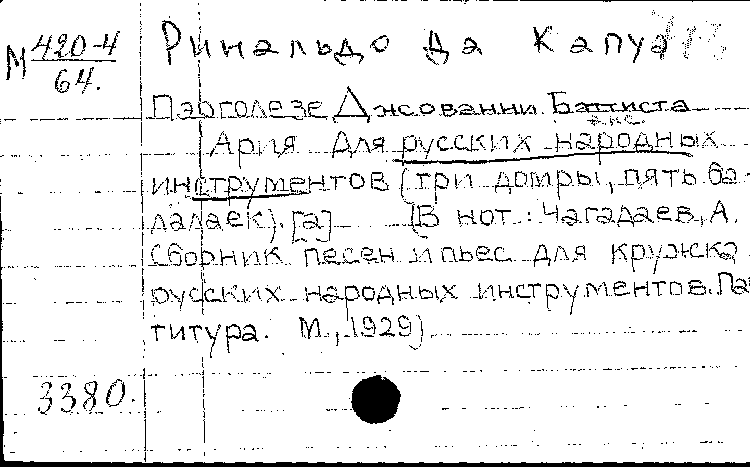 М 420-4
64.
Ринальдо да Капуа
Пэрголезе Джованни Баттиста
2 экс
Ария для русских народных
инструментов (три домры, пять ба-
лалаек). [а] (В нот: Чагадаев, А.
Сборник песен и пьес для кружка
русских народных инструментов. Пар
титура. М., 1929)
3380.